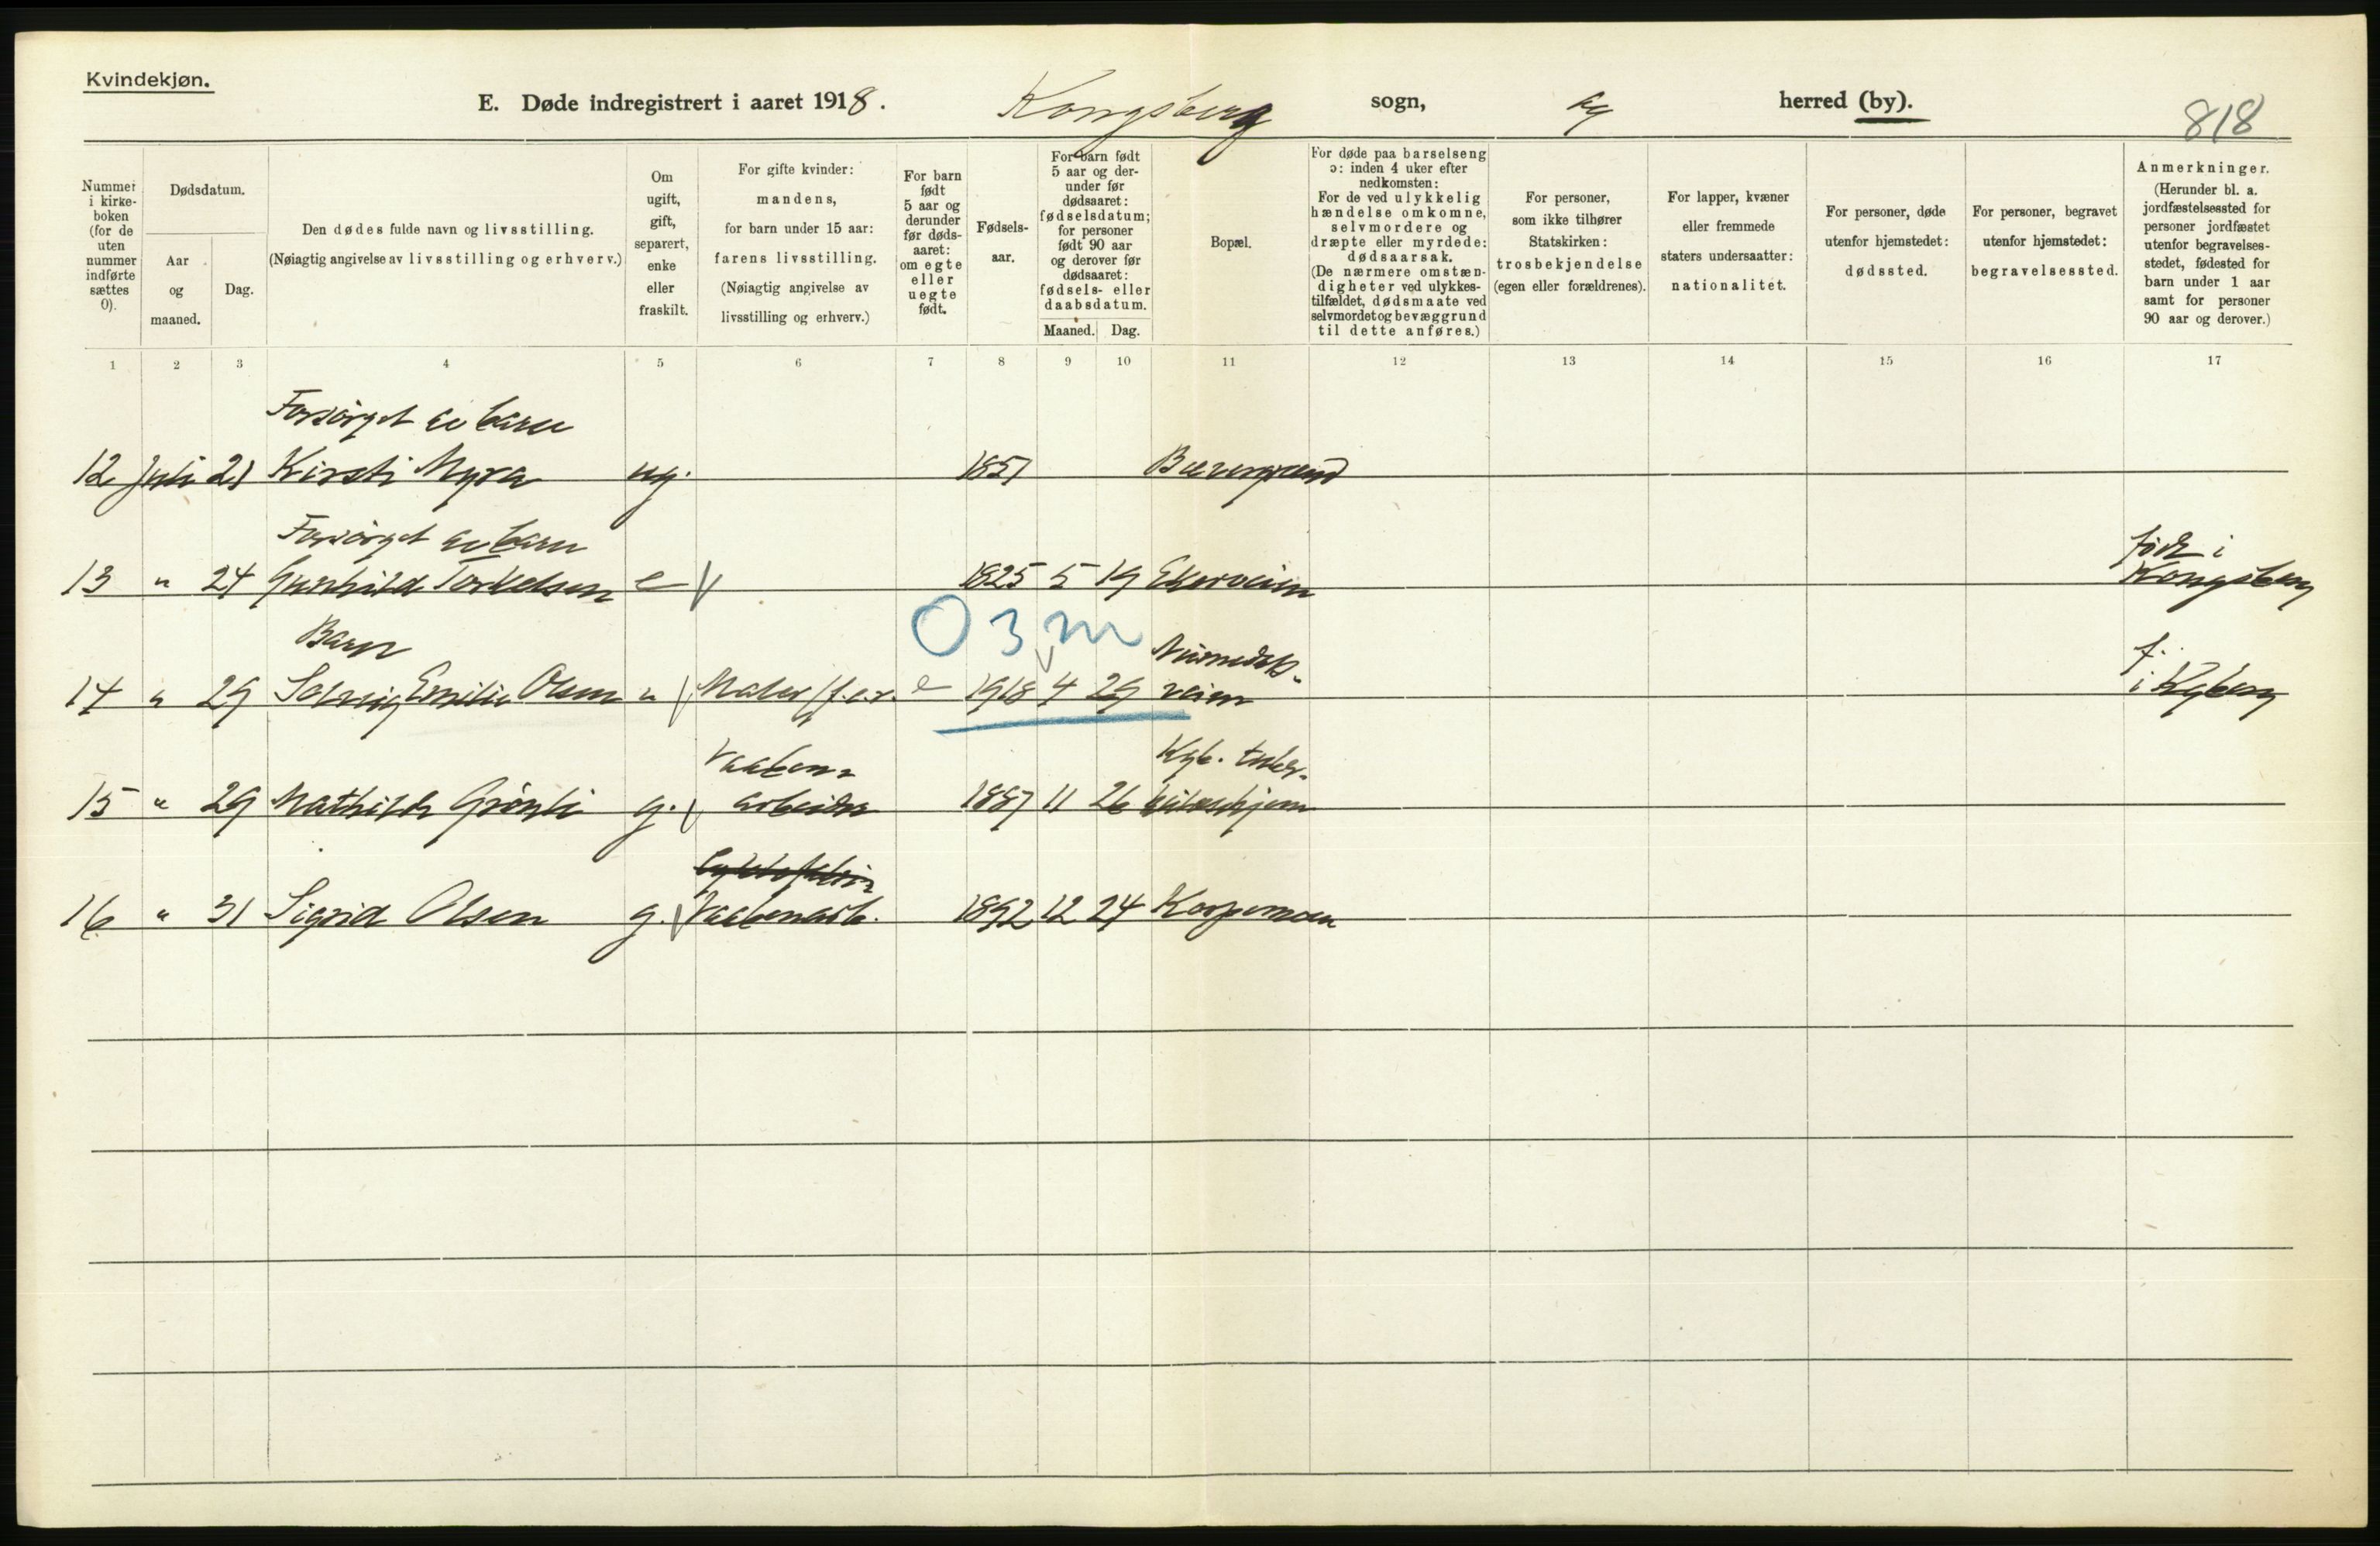 Kvindekjøn.
E. Døde indregistrert i aaret 1918. Kongsberg sogn, herred (by).
818
Nummer i kirkeboken (for de uten nummer indførte sættes 0).
Dødsdatum.
Aar og maaned.
Dag.
Den dødes fulde navn og livsstilling.
(Nøiagtig angivelse av livsstilling og erhverv.)
Om ugift, gift, separert, enke eller fraskilt.
For gifte kvinder: mandens,
for barn under 15 aar: farens livsstilling.
(Nøiagtig angivelse av livsstilling og erhverv.)
For barn født 5 aar og derunder før dødsaaret: om egte eller uegte født.
Fødselsaar.
For barn født 5 aar og derunder før dødsaaret: fødselsdatum; for personer født 90 aar og derover før dødsaaret: fødsels- eller daabsdatum.
Maaned. Dag.
Bopæl.
For døde paa barselseng ɔ: inden 4 uker efter nedkomsten:
For de ved ulykkelig hændelse omkomne, selvmordere og dræpte eller myrdede: dødsaarsak.
(De nærmere omstændigheter ved ulykkestilfældet, dødsmaate ved selvmordet og bevæggrund til dette anføres.)
For personer, som ikke tilhører Statskirken: trosbekjendelse (egen eller forældrenes).
For lapper, kvæner eller fremmede staters undersaatter: nationalitet.
For personer, døde utenfor hjemstedet: dødssted.
For personer, begravet utenfor hjemstedet: begravelsessted.
Anmerkninger.
(Herunder bl. a. jordfæstelsessted for personer jordfæstet utenfor begravelsesstedet, fødested for barn under 1 aar samt for personer 90 aar og derover.)
1 2 3 4 5 6 7 8 9 10 11 12 13 14 15 16 17
Forsörget av barn
12 Juli 21 Kirsti Myra ug. 1857
Forsörget av barn
født i
13 " 24 Gunhild Torkelsen e 1825 5 19 Ekerveien Kongsberg
O 3 m
Barn Numedals- f.
14 " 29 Solveig Emilie Olsen " Maler e 1918 4 29 veien i Kgberg
Vaaben- Kgb. tuber-
15 " 29 Mathilde Grönli g. arbeider 1887 11 26
16 " 31 Sigrid Olsen g. Vaabenarb. 1892 12 24